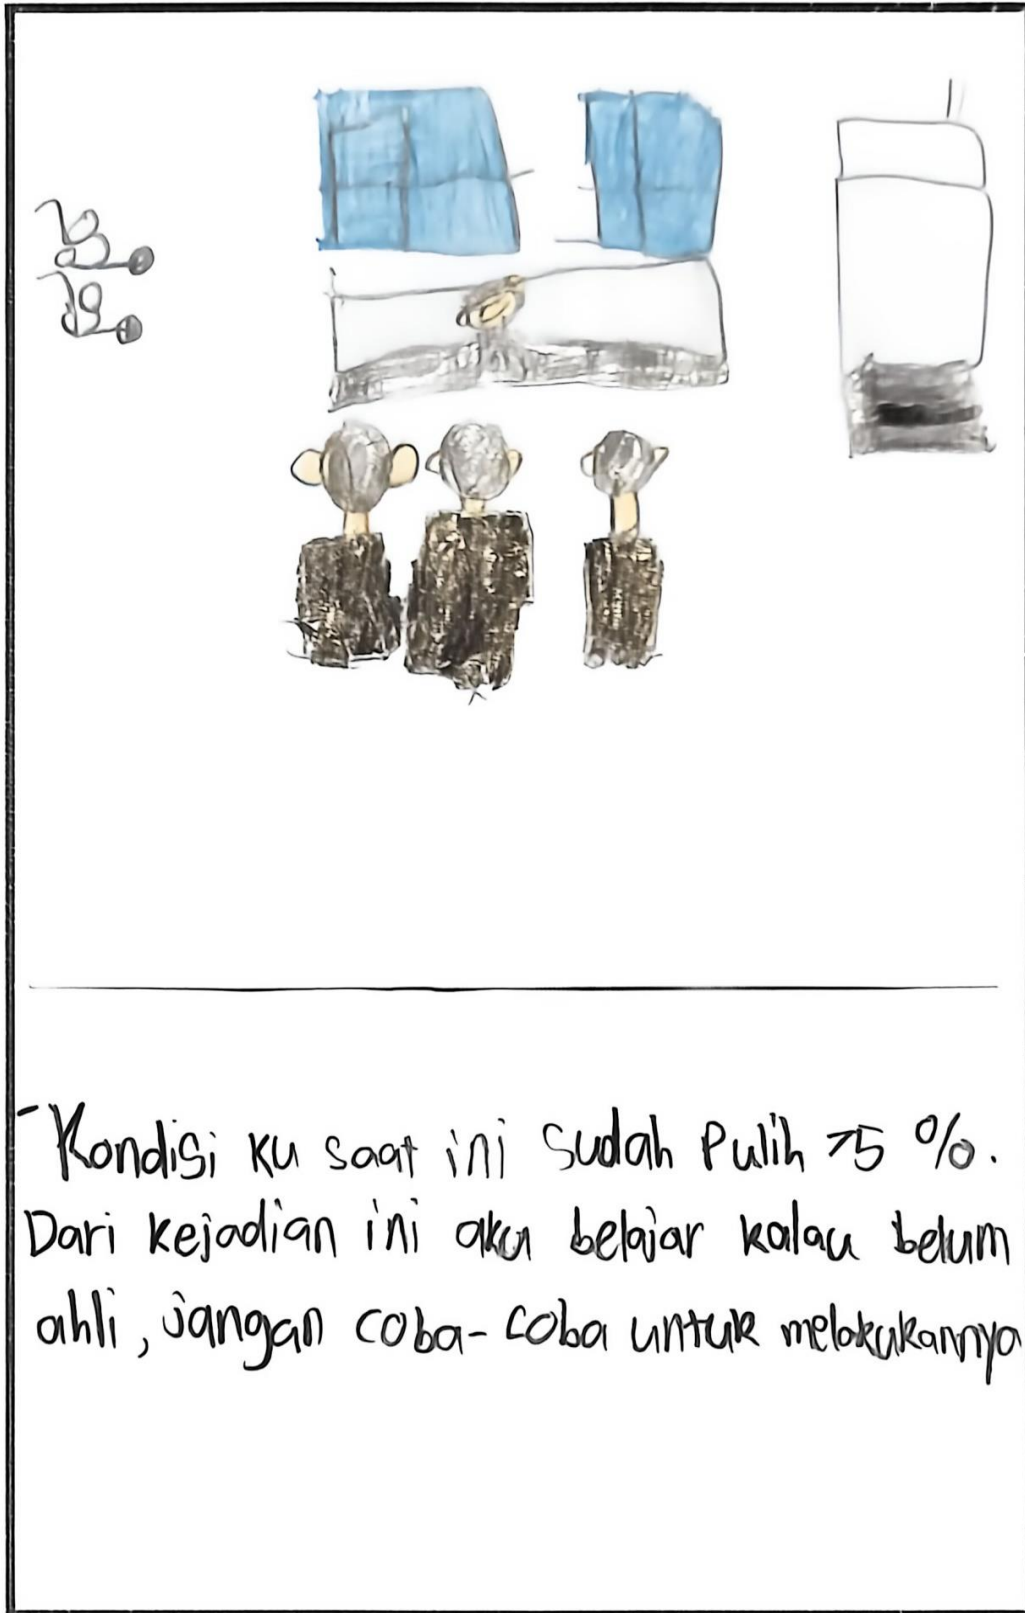 - Kondisi ku saat ini Sudah Pulih 75 %.
Dari kejadian ini aku belajar kalau belum
ahli, jangan coba-coba untuk melakukannya